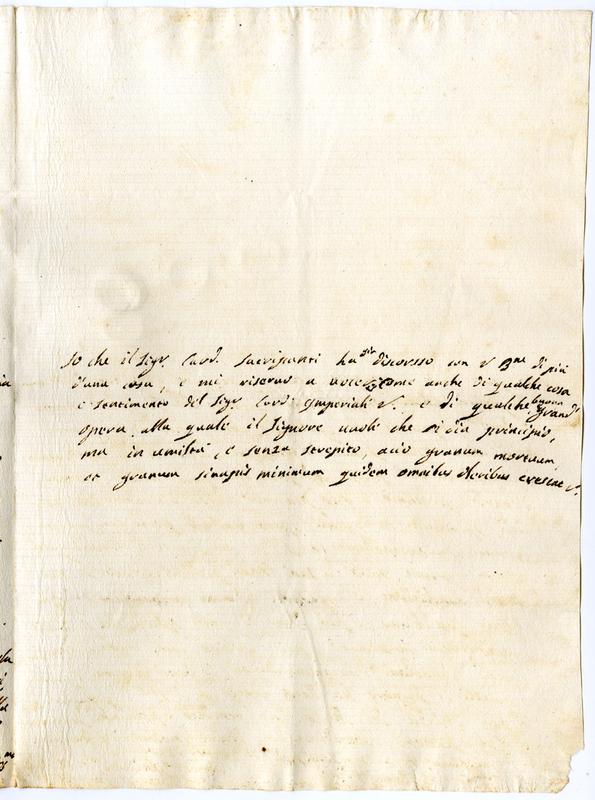 So che il Sigr. Card. Sacripanti ha già discorso con V. Bne di più
d'una cosa, e mi riservo a voce, come anche di qualche cosa
e sentimento del Sigr. Card. Imperiali &. e di qualche buona grand'
opera, alla quale il Signore vuole che si dia principio,
ma in umiltà, e senza strepito, acciò granum mortuum,
et granum sinapis minimum quidem omnibus oleribus crescat &.